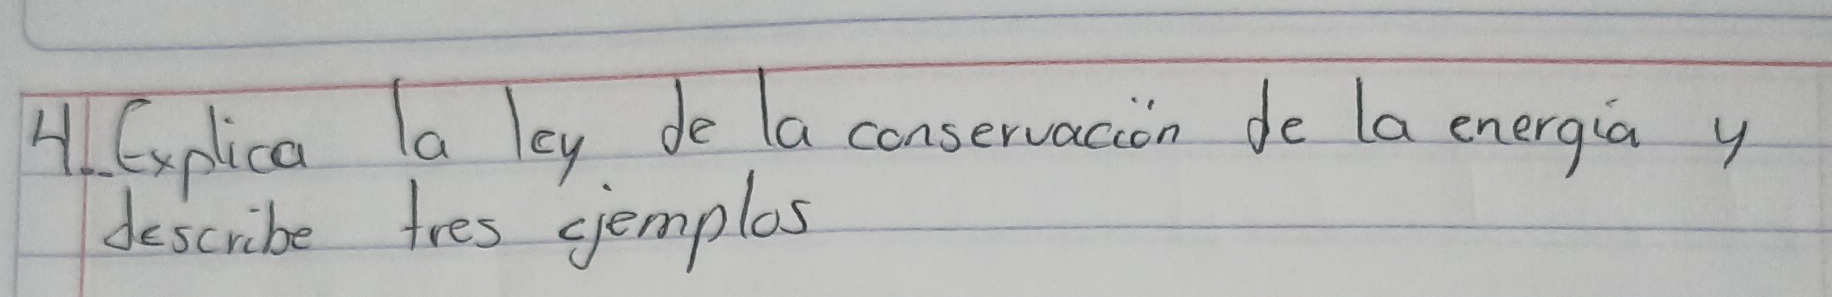 4. Explica la ley de la conservación de la energía y
describe tres ejemplos